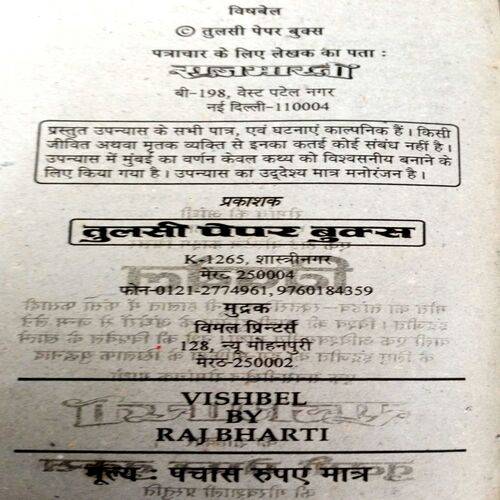 विषबेल
© तुलसी पेपर बुक्स
पत्राचार के लिए लेखक का पता :
राजभारती
बी-198, वेस्ट पटेल नगर
नई दिल्ली-110004
प्रस्तुत उपन्यास के सभी पात्र, एवं घटनाएं काल्पनिक हैं। किसी
जीवित अथवा मृतक व्यक्ति से इनका कतई कोई संबंध नहीं है।
उपन्यास में मुंबई का वर्णन केवल कथ्य को विश्वसनीय बनाने के
लिए किया गया है। उपन्यास का उद्देश्य मात्र मनोरंजन है।
प्रकाशक
तुलसी पेपर बुक्स
K-1265, शास्त्रीनगर
मेरठ 250004
फोन-0121-2774961, 9760184359
मुद्रक
विमल प्रिन्टर्स
128, न्यू मोहनपुरी
मेरठ-250002
VISHBEL
BY
RAJ BHARTI
मूल्य : पचास रुपए मात्र